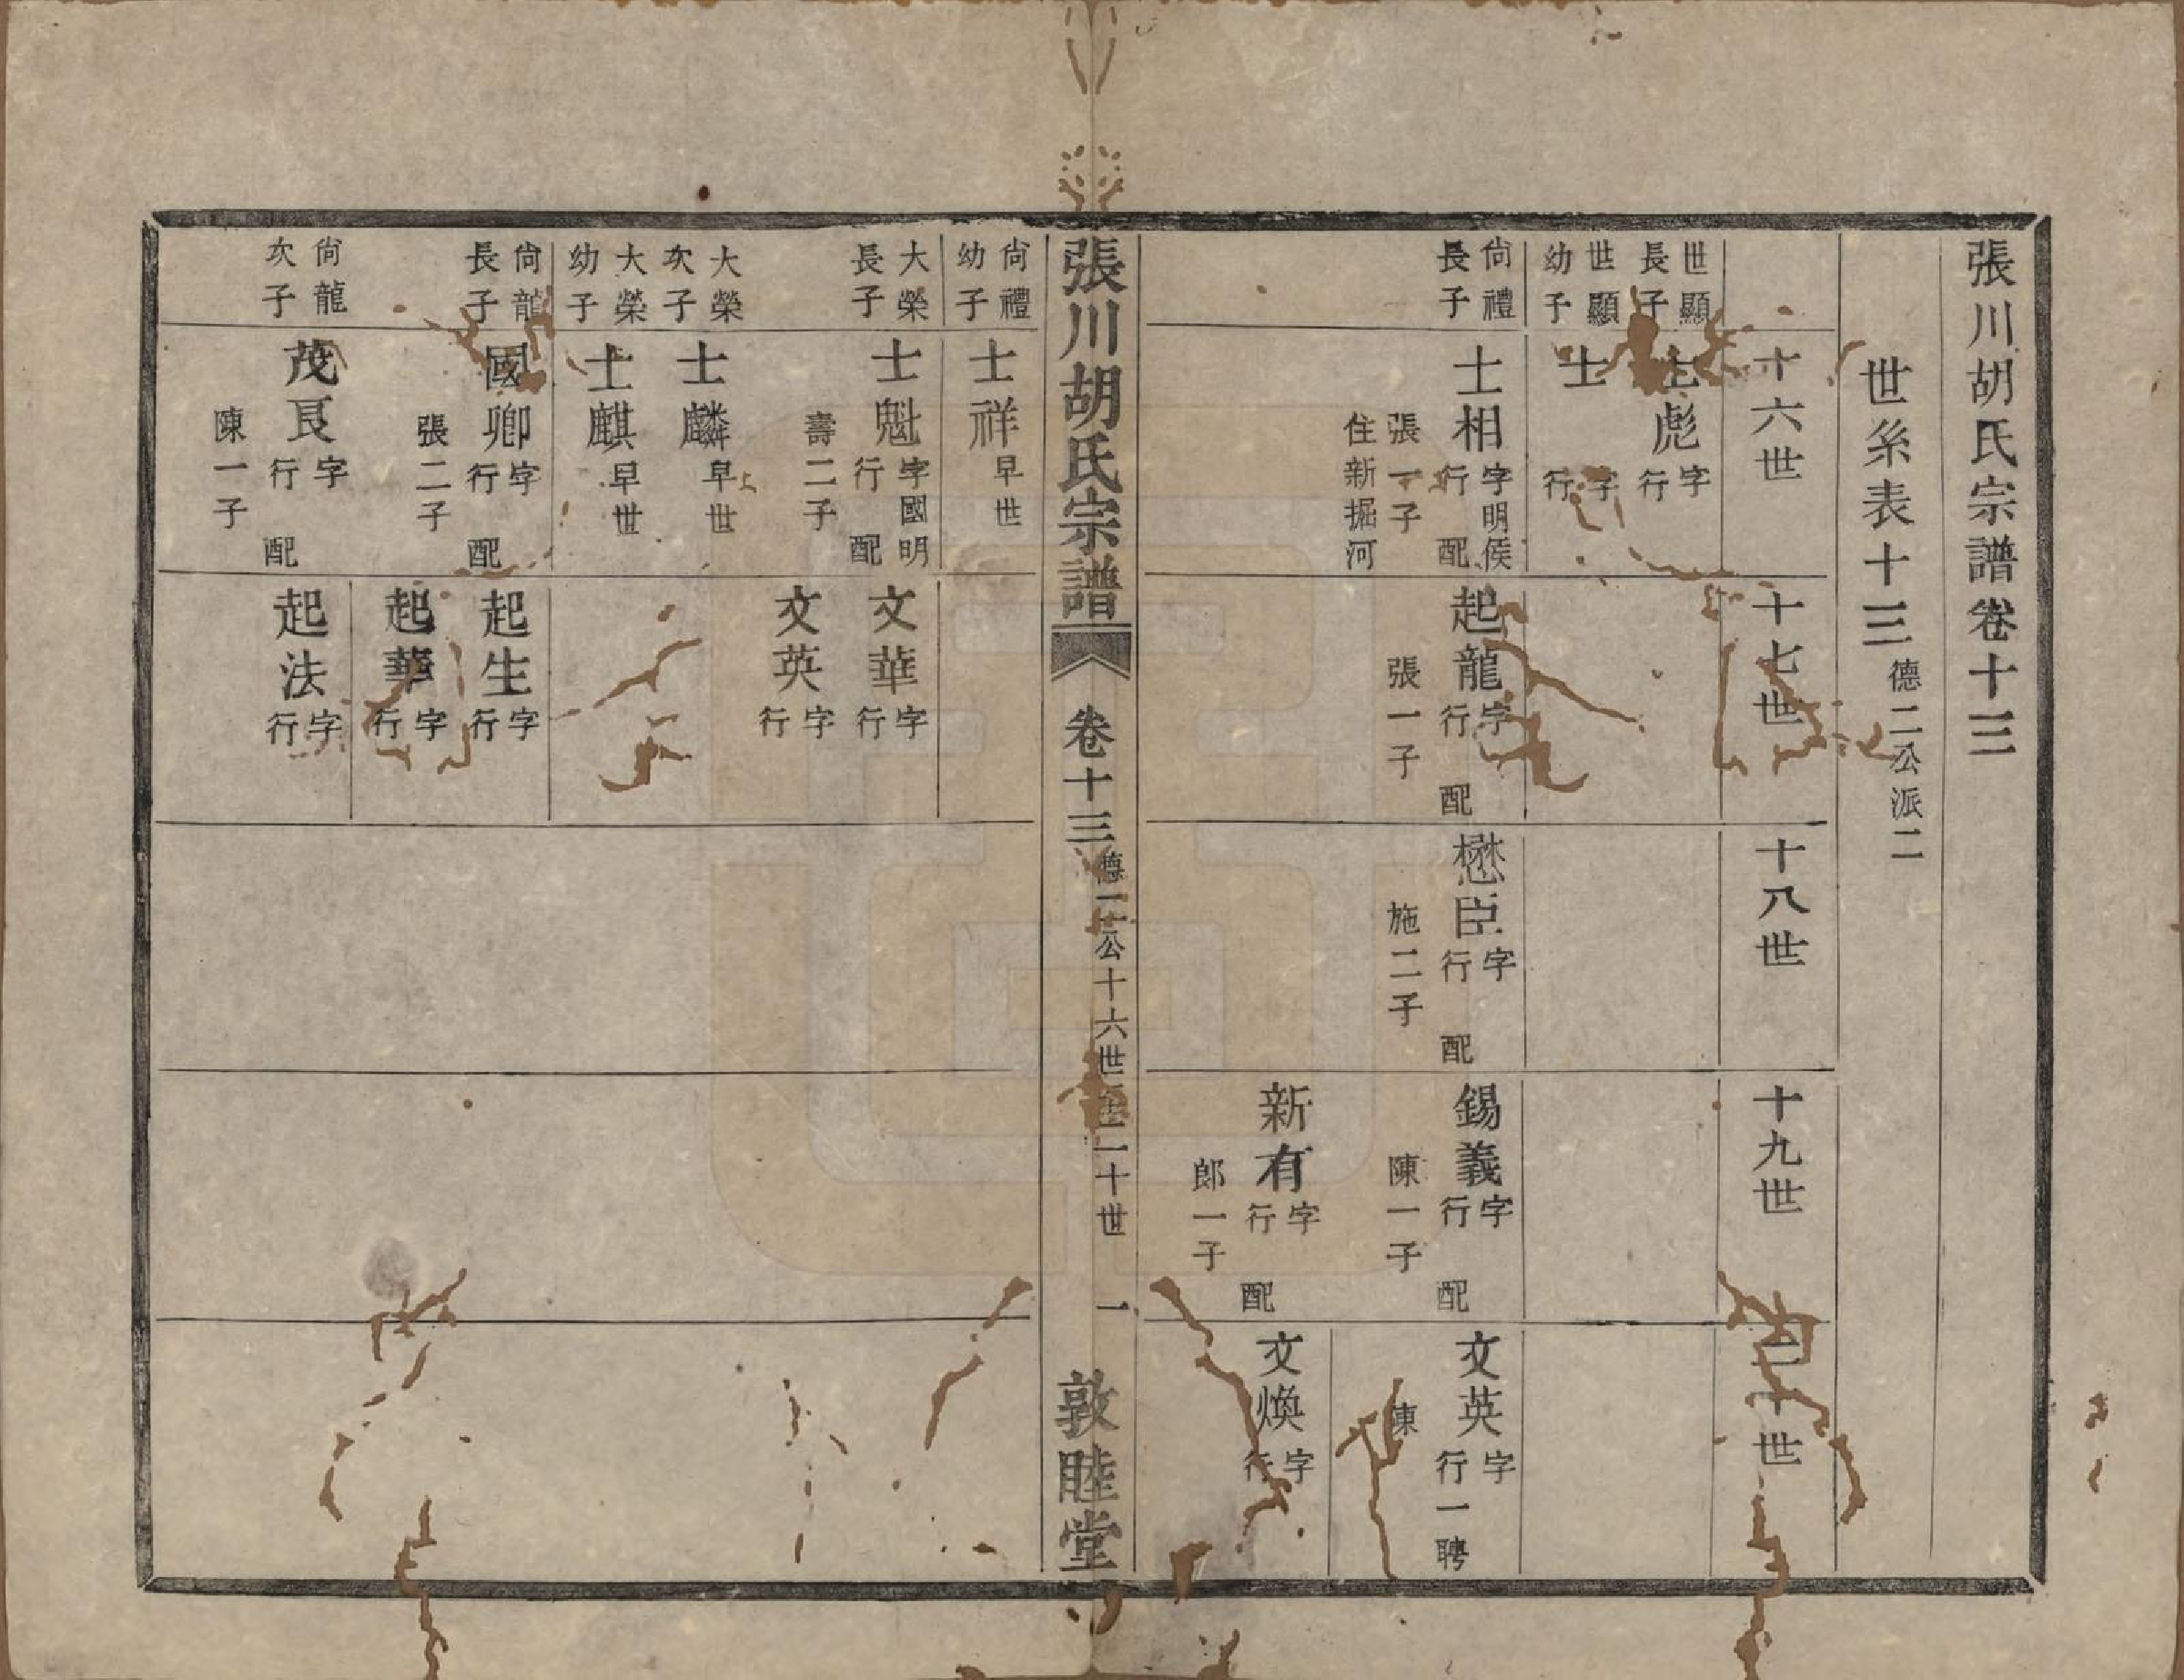 張川胡氏宗譜卷十三
世系表十三 德二公派二
十六世
十七世
十八世
十九世
二十世
世顯長子
士彪 字 行
世顯幼子
士 字 行
尙禮長子
士相 字明侯 行 配
張一子
住新掘河
起龍 字 行 配
張一子
懋臣 字 行 配
施二子
錫義 字 行 配
陳一子
文英 字 行一 聘
陳
新有 字 行 配
郎一子
文煥 字 行
張川胡氏宗譜 卷十三 德二公十六世至二十世 一 敦睦堂
尙禮幼子
士祥 早世
大榮長子
士魁 字國明 行 配
壽二子
文華 字 行
文英 字 行
大榮次子
士麟 早世
大榮幼子
士麒 早世
尙龍長子
國卿 字 行 配
張二子
起生 字 行
起華 字 行
尙龍次子
茂良 字 行 配
陳一子
起法 字 行